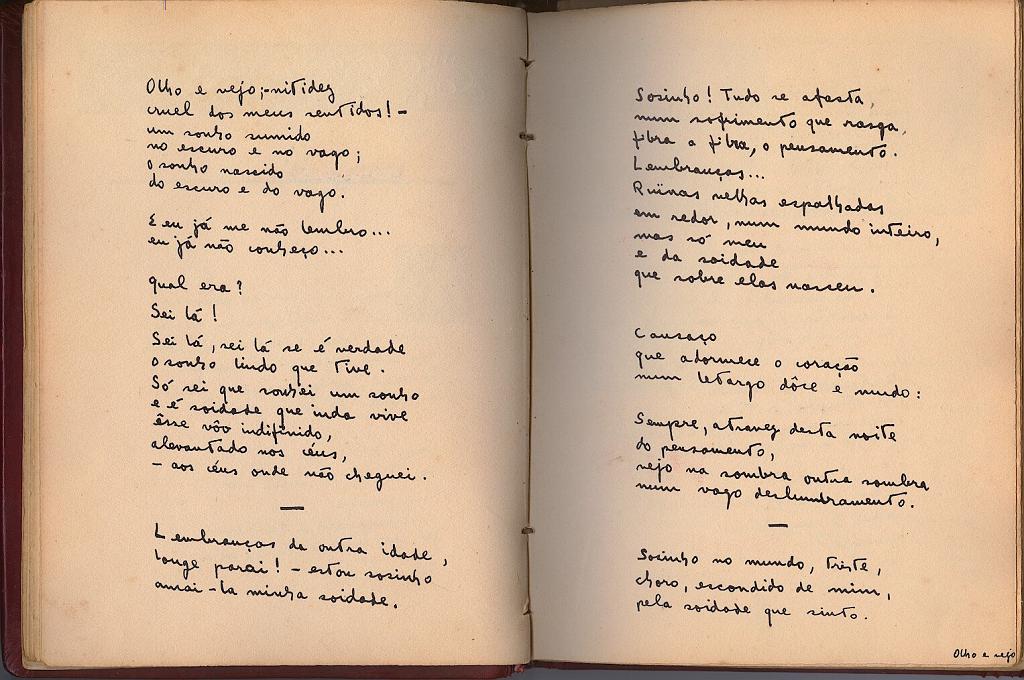 Olho e vejo; - nitidez
cruel dos meus sentidos! -
um sonho sumido
no escuro e no vago;
o sonho nascido
do escuro e do vago.
E eu já me não lembro...
eu já não conheço...
qual era?
Sei lá!
Sei lá, sei lá se é verdade
o sonho lindo que tive.
Só sei que sonhei um sonho
e é soidade que inda vive
êsse vôo indifinido,
alevantado nos céus,
- aos céus onde não cheguei.
—
Lembranças da outra idade,
longe parai! - estou sosinho
amai-la minha soidade.
Sosinho! Tudo se afasta,
num sofrimento que rasga,
fibra a fibra, o pensamento.
Lembranças...
Ruínas velhas espalhadas
em redor, num mundo inteiro,
mas só meu
e da soidade
que sobre elas nasceu.
Cansaço
que adormece o coração
num letargo dôce e mudo:
Sempre, atravez desta noite
do pensamento,
vejo na sombra outra sombra
num vago deslumbramento.
—
Sosinho no mundo, triste,
choro, escondido de mim,
pela soidade que sinto.
Olho e vejo